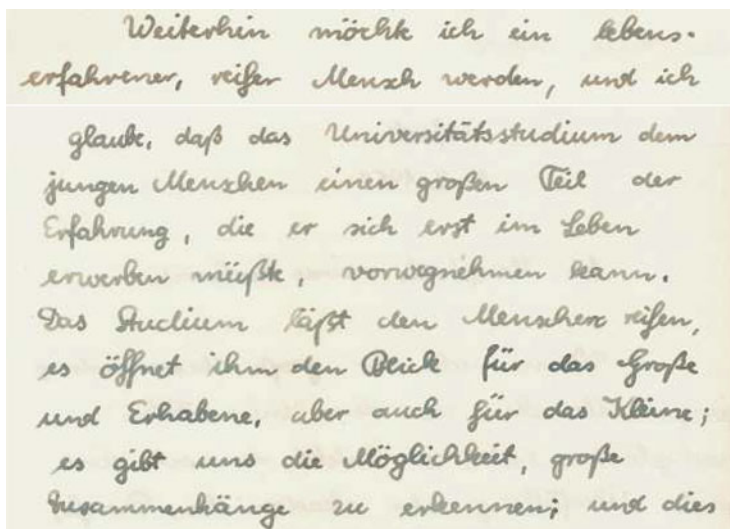 Weiterhin möchte ich ein lebens-
erfahrener, reifer Mensch werden, und ich
glaube, daß das Universitätsstudium dem
jungen Menschen einen großen Teil der
Erfahrung, die er sich erst im Leben
erwerben müßte, vorwegnehmen kann.
Das Studium läßt den Menschen reifen,
es öffnet ihm den Blick für das Große
und Erhabene, aber auch für das Kleine;
es gibt uns die Möglichkeit, große
Zusammenhänge zu erkennen; und dies